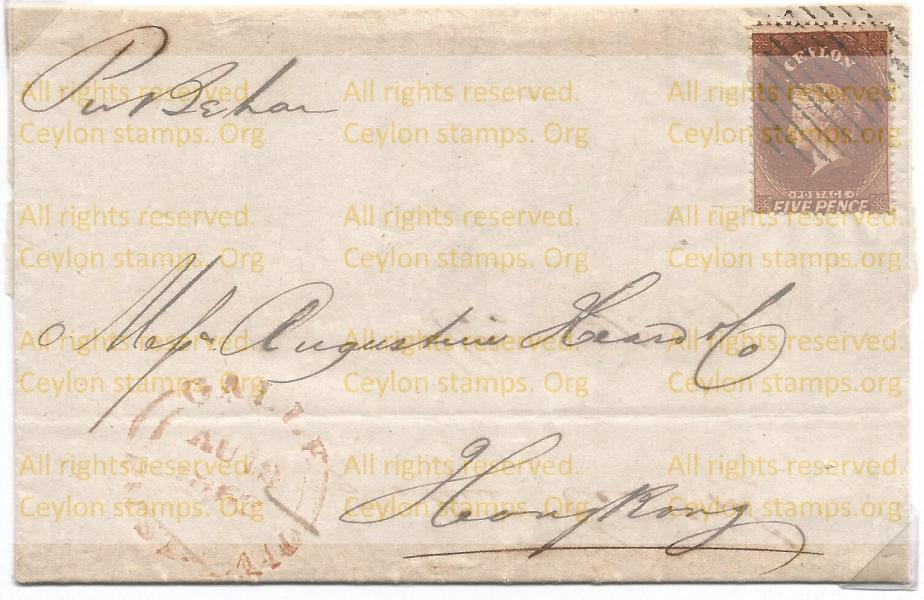 Per Behar
CEYLON
POSTAGE
FIVE PENCE
All rights reserved. All rights reserved. All rights reserved.
Ceylon stamps. Org Ceylon stamps. Org Ceylon stamps. Org
All rights reserved. All rights reserved. All rights reserved.
Ceylon stamps. Org Ceylon stamps. Org Ceylon stamps. org
Messrs Augustine Heard & Co
All rights reserved. All rights reserved. All rights reserved.
Ceylon stamps. Org Ceylon stamps. Org Ceylon stamps. Org
GALLE
AU
PAID
Hong Kong
All rights reserved. All rights reserved. All rights reserved.
Ceylon stamps. Org Ceylon stamps. Org Ceylon stamps. Org